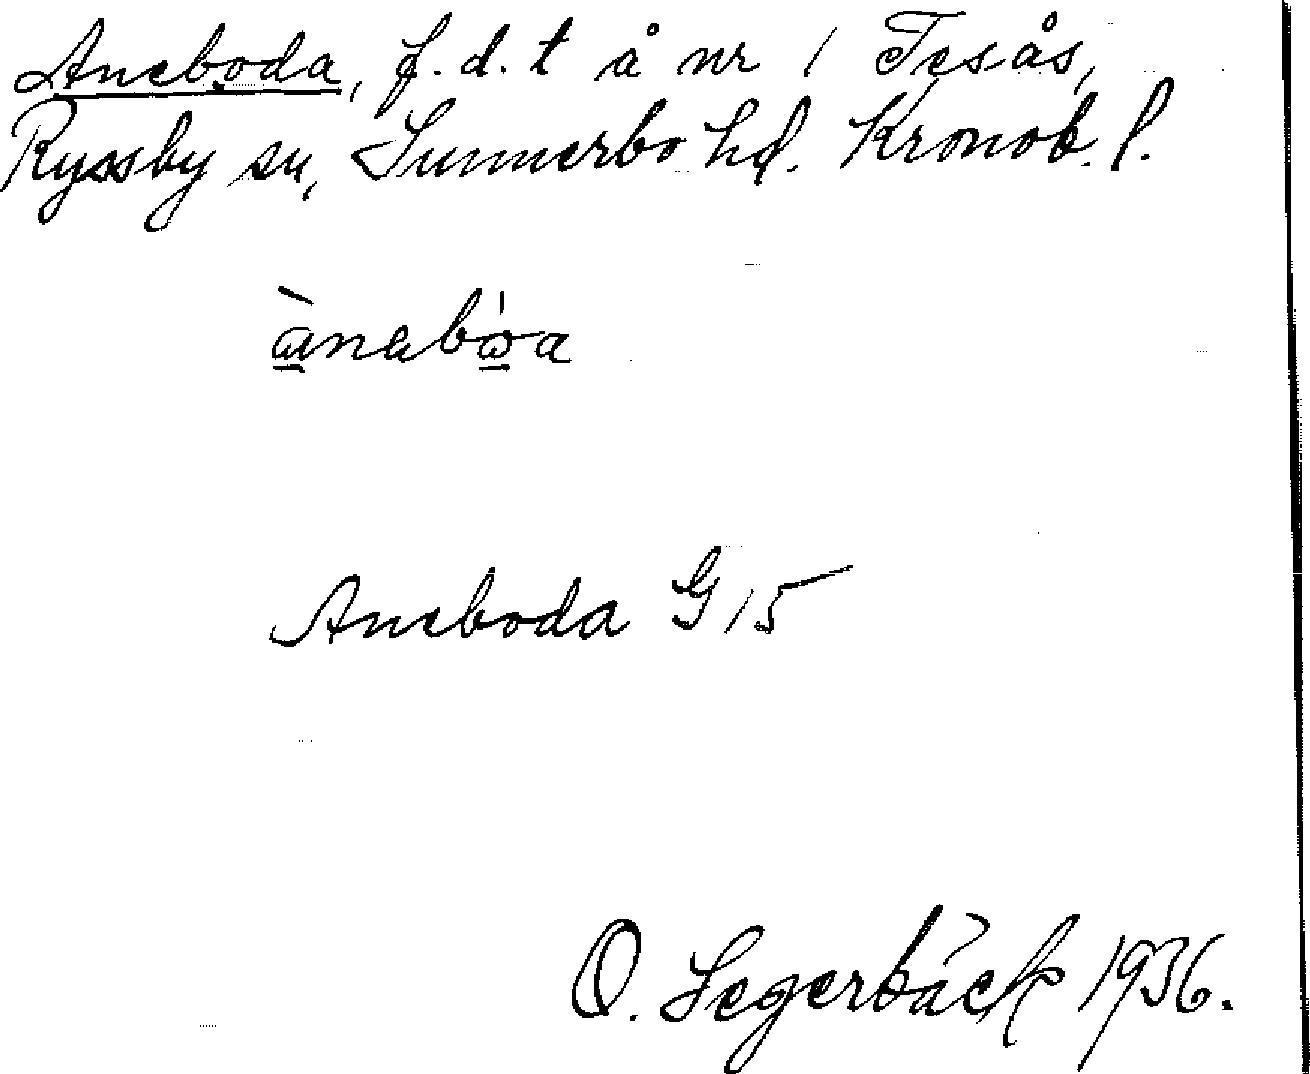 Aneboda, f. d. t å nr 1 Tesås,
Ryssby sn, Sunnerbo hd. Kronob. l.
Aneboda G 15
O. Segerbäck 1936.